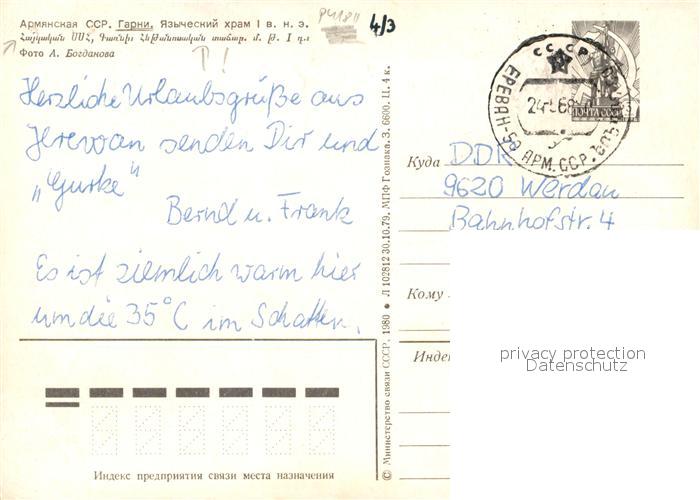 Армянская ССР. Гарни. Языческий храм I в. н. э.
Հայկական ՍՍՀ, Գառնի։ Հեթանոսական տաճար. մ. թ. I դ.
Фото А. Богданова
4/3
Herzliche Urlaubsgrüße aus
Jerewan senden Dir und
„Gurke“
Bernd u. Frank
Es ist ziemlich warm hier
um die 35°C im Schatten.
Индекс предприятия связи места назначения
© Министерство связи СССР, 1980 ● Л 102812 30.10.79. МПФ Гознака. З. 6600. Ц. 4 к.
СССР
ЕРЕВАН-52 АРМ. ССР
ПОЧТА СССР
Куда DDR
9620 Werdau
Bahnhofstr. 4
Кому
Индек
privacy protection
Datenschutz